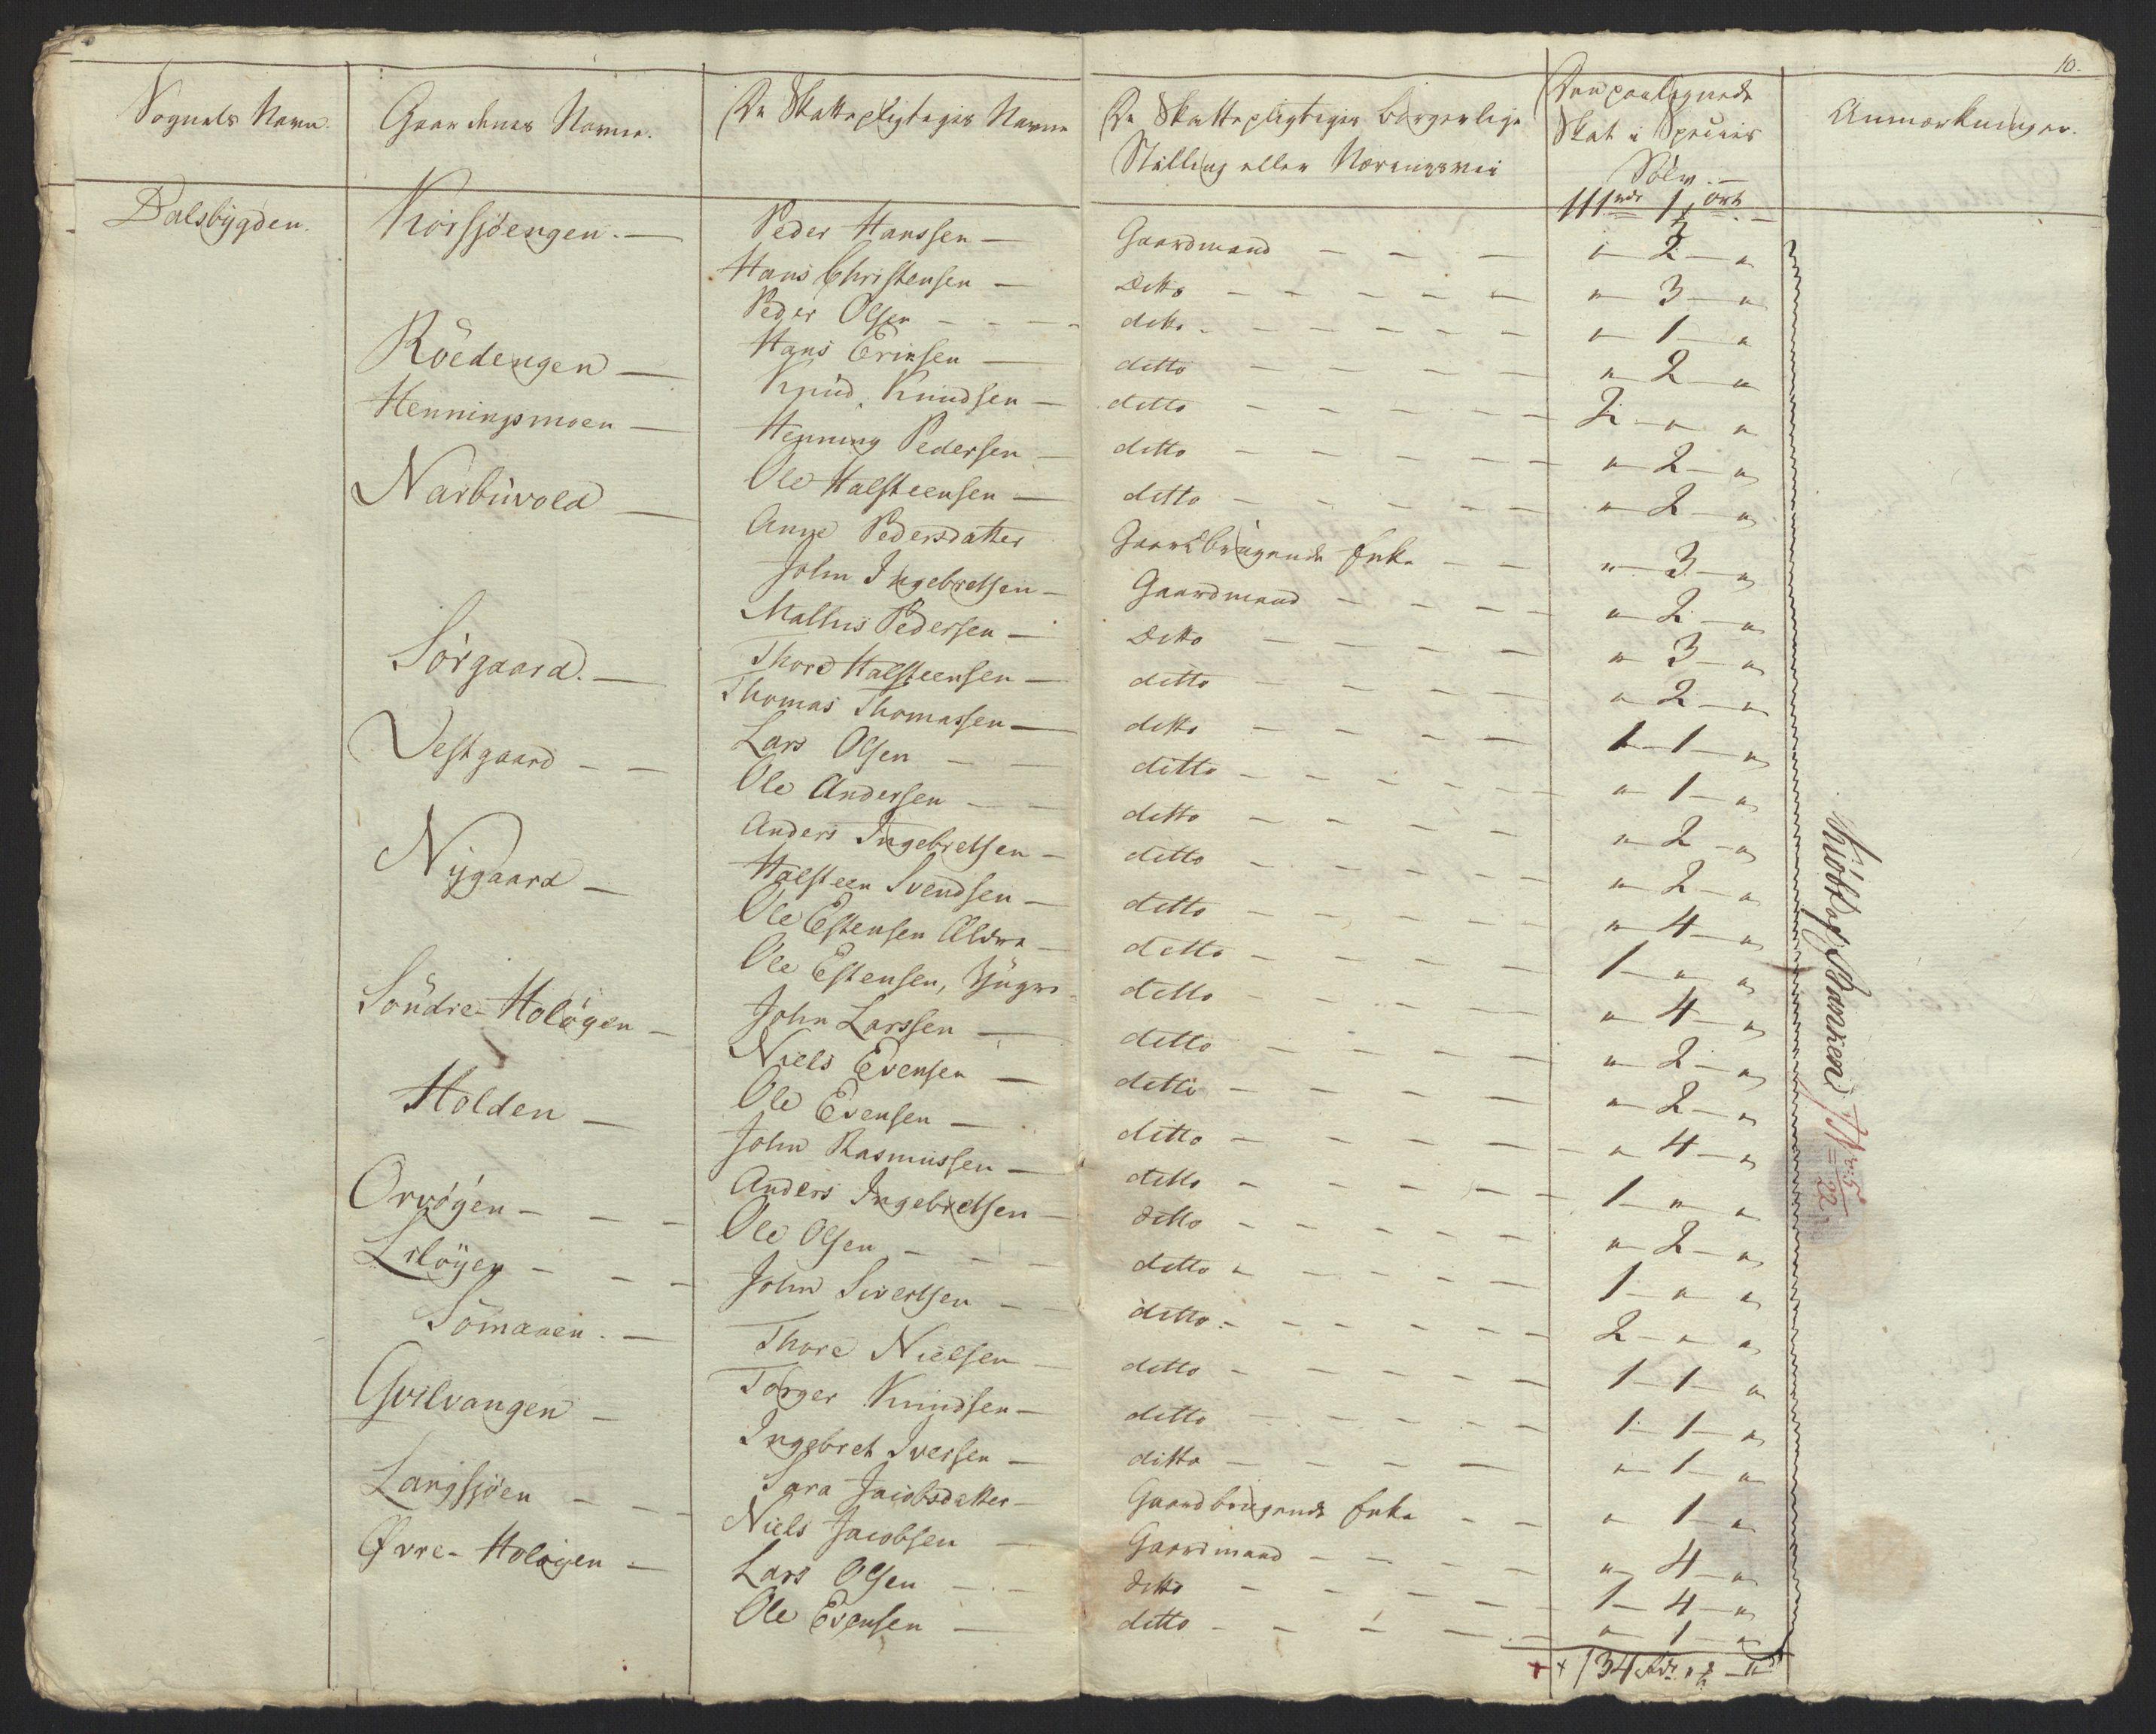 10.
Sognets Navn. Gaardenes Navne. De Skattepligtiges Navne De Skattepligtiges borgerlige Stilling eller Næringsvei Den paalignede Skat i Species Sølv.— Anmærkninger.
111 1 ort
Dalsbygden. Korssjøengen.— Peder Hanssen— Gaardmand — — — " 2 — "
Hans Christensen — Ditto — — — — — " 3 — "
Peder Olsen — — — ditto. — — — — — " 1 — "
Röedengen — Hans Ericksen — ditto — — — — " 2 — "
Henningsmoen — Knud Knudsen — ditto — — — — — 2 — " "
Henning Pedersen — ditto — — — — — " 2 — "
Narbuvold — Ole Halsteensen — ditto — — — — — " 2 — "
Anne Pedersdatter Gaardbrugende Enke — — " 3 — "
John Ingebretsen — Gaardmand — — — — " 2 — "
Maltus Pedersen — Ditto — — — — " 3 — "
Sörgaard.— Thore Halsteensen — ditto — — — — " 2 — "
Thomas Thomassen — ditto — — — — 1 — 1 — "
Vestgaard — — Lars Olsen — — ditto — — — — — " 1 — "
Ole Andersen — — ditto — — — — " 2 — "
Nÿgaard — Anders Ingebretsen — ditto — — — — — " 2 — "
Halsteen Svendsen — ditto — — — — — " 4 — "
Ole Estensen Ældre — ditto — — — — 1 — " "
Ole Estensen, Yngre — ditto — — — — — " 4 — "
Söndre-Holøyen — John Larssen — ditto — — — — — " 2 — "
Niels Evensen — ditto — — — — — " 2 — "
Holden — Ole Evensen — ditto — — — — — " 4 — "
John Rasmussen — ditto — — — — — 1 — " "
Orvøyen — — — Anders Ingebretsen — ditto — — — — — " 2 — "
Liløyen — — — Ole Olsen — — — ditto — — — — — 1 — " "
Sömaaen. — John Sivertsen — — ditto. — — — — — 2 — " "
Thore Nielsen — ditto — — — — — 1 — 1 — "
Gvilvangen — Torger Knudsen — ditto — — — — — 1 — 1 — "
Ingebret Iversen — ditto — — — — " 1 — "
Langsjøen — — — Sara Jacobsdatter — Gaardbrugende Enke — — " 1 — "
Niels Jacobsen — Gaardmand — — — — " 4 — "
Øvre-Holøyen — Lars Olsen — — ditto — — — — — 1 — 4 — "
Ole Evensen — ditto — — — — — " 1 — "
134